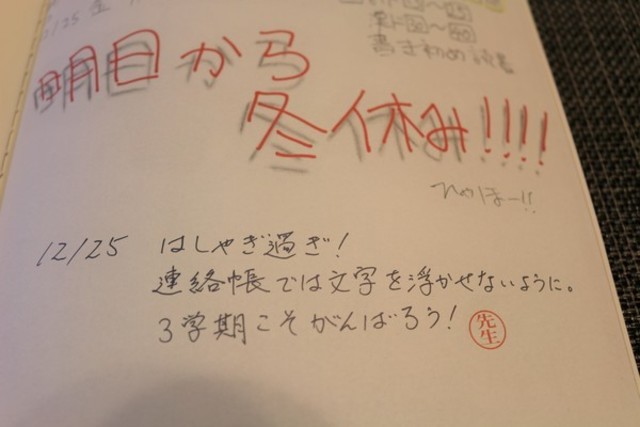 /25 金
書き初め
明日から
冬休み!!!!
ひゃほー!!
12/25 はしゃぎ過ぎ!
連絡帳では文字を浮かせないように。
3学期こそがんばろう!
先生